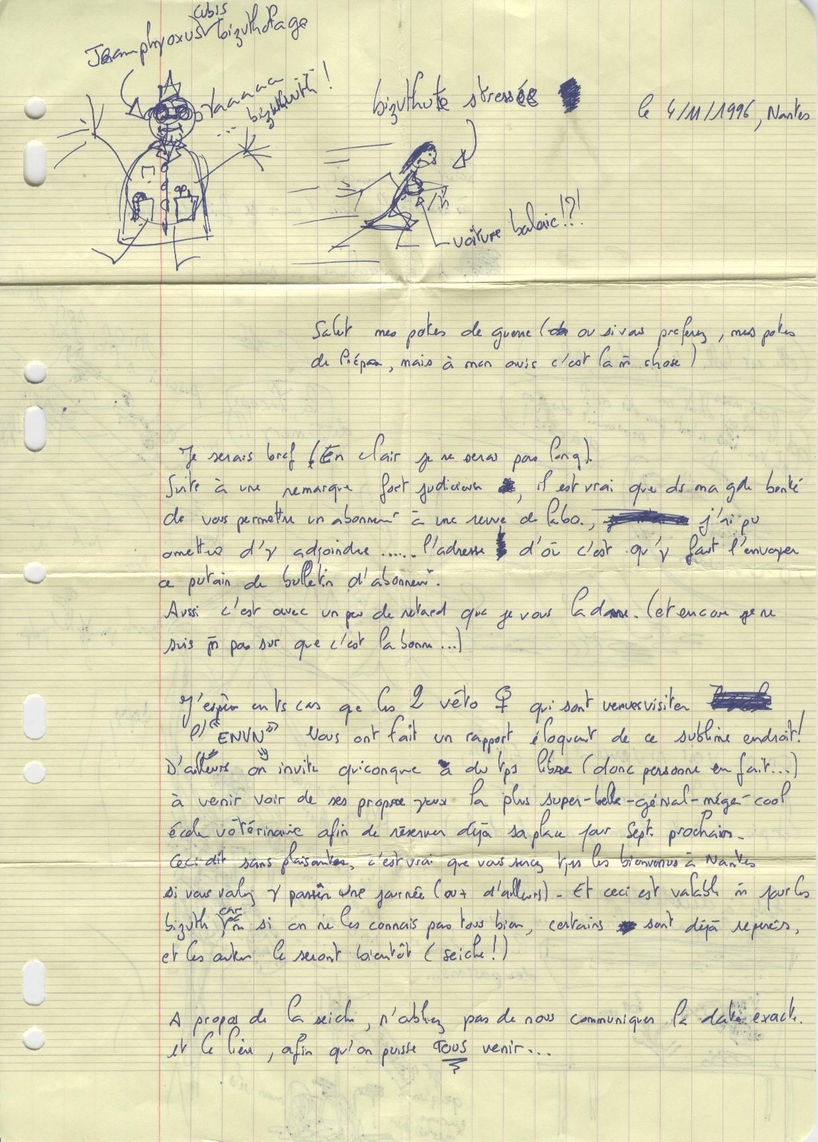 cubis
bizuthofage
Yaaaaa
... bizuthuit !
bizuthute stressée
le 4/11/1996, Nantes
voiture balaie !?!
Salut mes potes de guerre ( ou si vous preferez, mes potes
de Prépa, mais à mon avis c'est la m̄ chose )
Je serais bref (En clair je ne serai pas long).
Suite à une remarque fort judicieuse , il est vrai que ds ma gde bonté
de vous permettre un abonnemt à une revue de labo., j'ai pu
omettre d'y adjoindre ...... l'adresse d'où c'est qu'y faut l'envoyer
ce putain de bulletin d'abonnemt.
Aussi c'est avec un peu de retard que je vous la donne. (et encore je ne
suis m̄ pas sur que c'est la bonne ...)
J'espère en ts cas que les 2 véto ♀ qui sont venues visiter
l' "ENVN" vous ont fait un rapport éloquent de ce sublime endroit !
D'ailleurs on invite quiconque a du tps libre (donc personne en fait...)
à venir voir de ses propres yeux la plus super-belle-génial-méga-cool
école vétérinaire afin de réserver déjà sa place pour Sept. prochain.
Ceci dit sans plaisanter, c'est vrai que vous serez tjrs les bienvenus à Nantes
si vous voulez y passer une journée (ou + d'ailleurs). Et ceci est valable m̄ pour les
bizuth car m̄ si on ne les connais pas tous bien, certains sont déjà repérés,
et les autres le seront bientôt (seiche !)
A propos de la seiche, n'oubliez pas de nous communiquer la date exacte.
et le lieu, afin qu'on puisse TOUS venir...